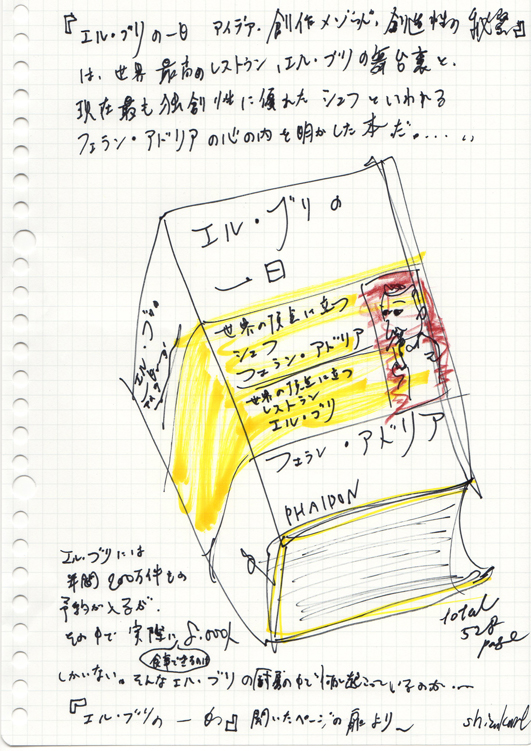 『エル・ブリの一日 アイデア、創作メソッド、創造性の秘密』
は、世界最高のレストラン、エル・ブリの舞台裏と、
現在最も独創性に優れたシェフといわれる
フェラン・アドリアの心の内を明かした本だ。.....
エル・ブリの
一日
世界の頂点に立つ
シェフ
フェラン・アドリア
世界の頂点に立つ
レストラン
エル・ブリ
フェラン・アドリア
PHAIDON
エル・ブリの
エル・ブリには
年間200万件もの
予約が入るが、
その中で実際に 8.000人
食事できるのは
しかいない。そんなエル・ブリの厨房の中で何が起こっているのか...
『エル・ブリの一日』 開いたページの扉より〜
total
528
page